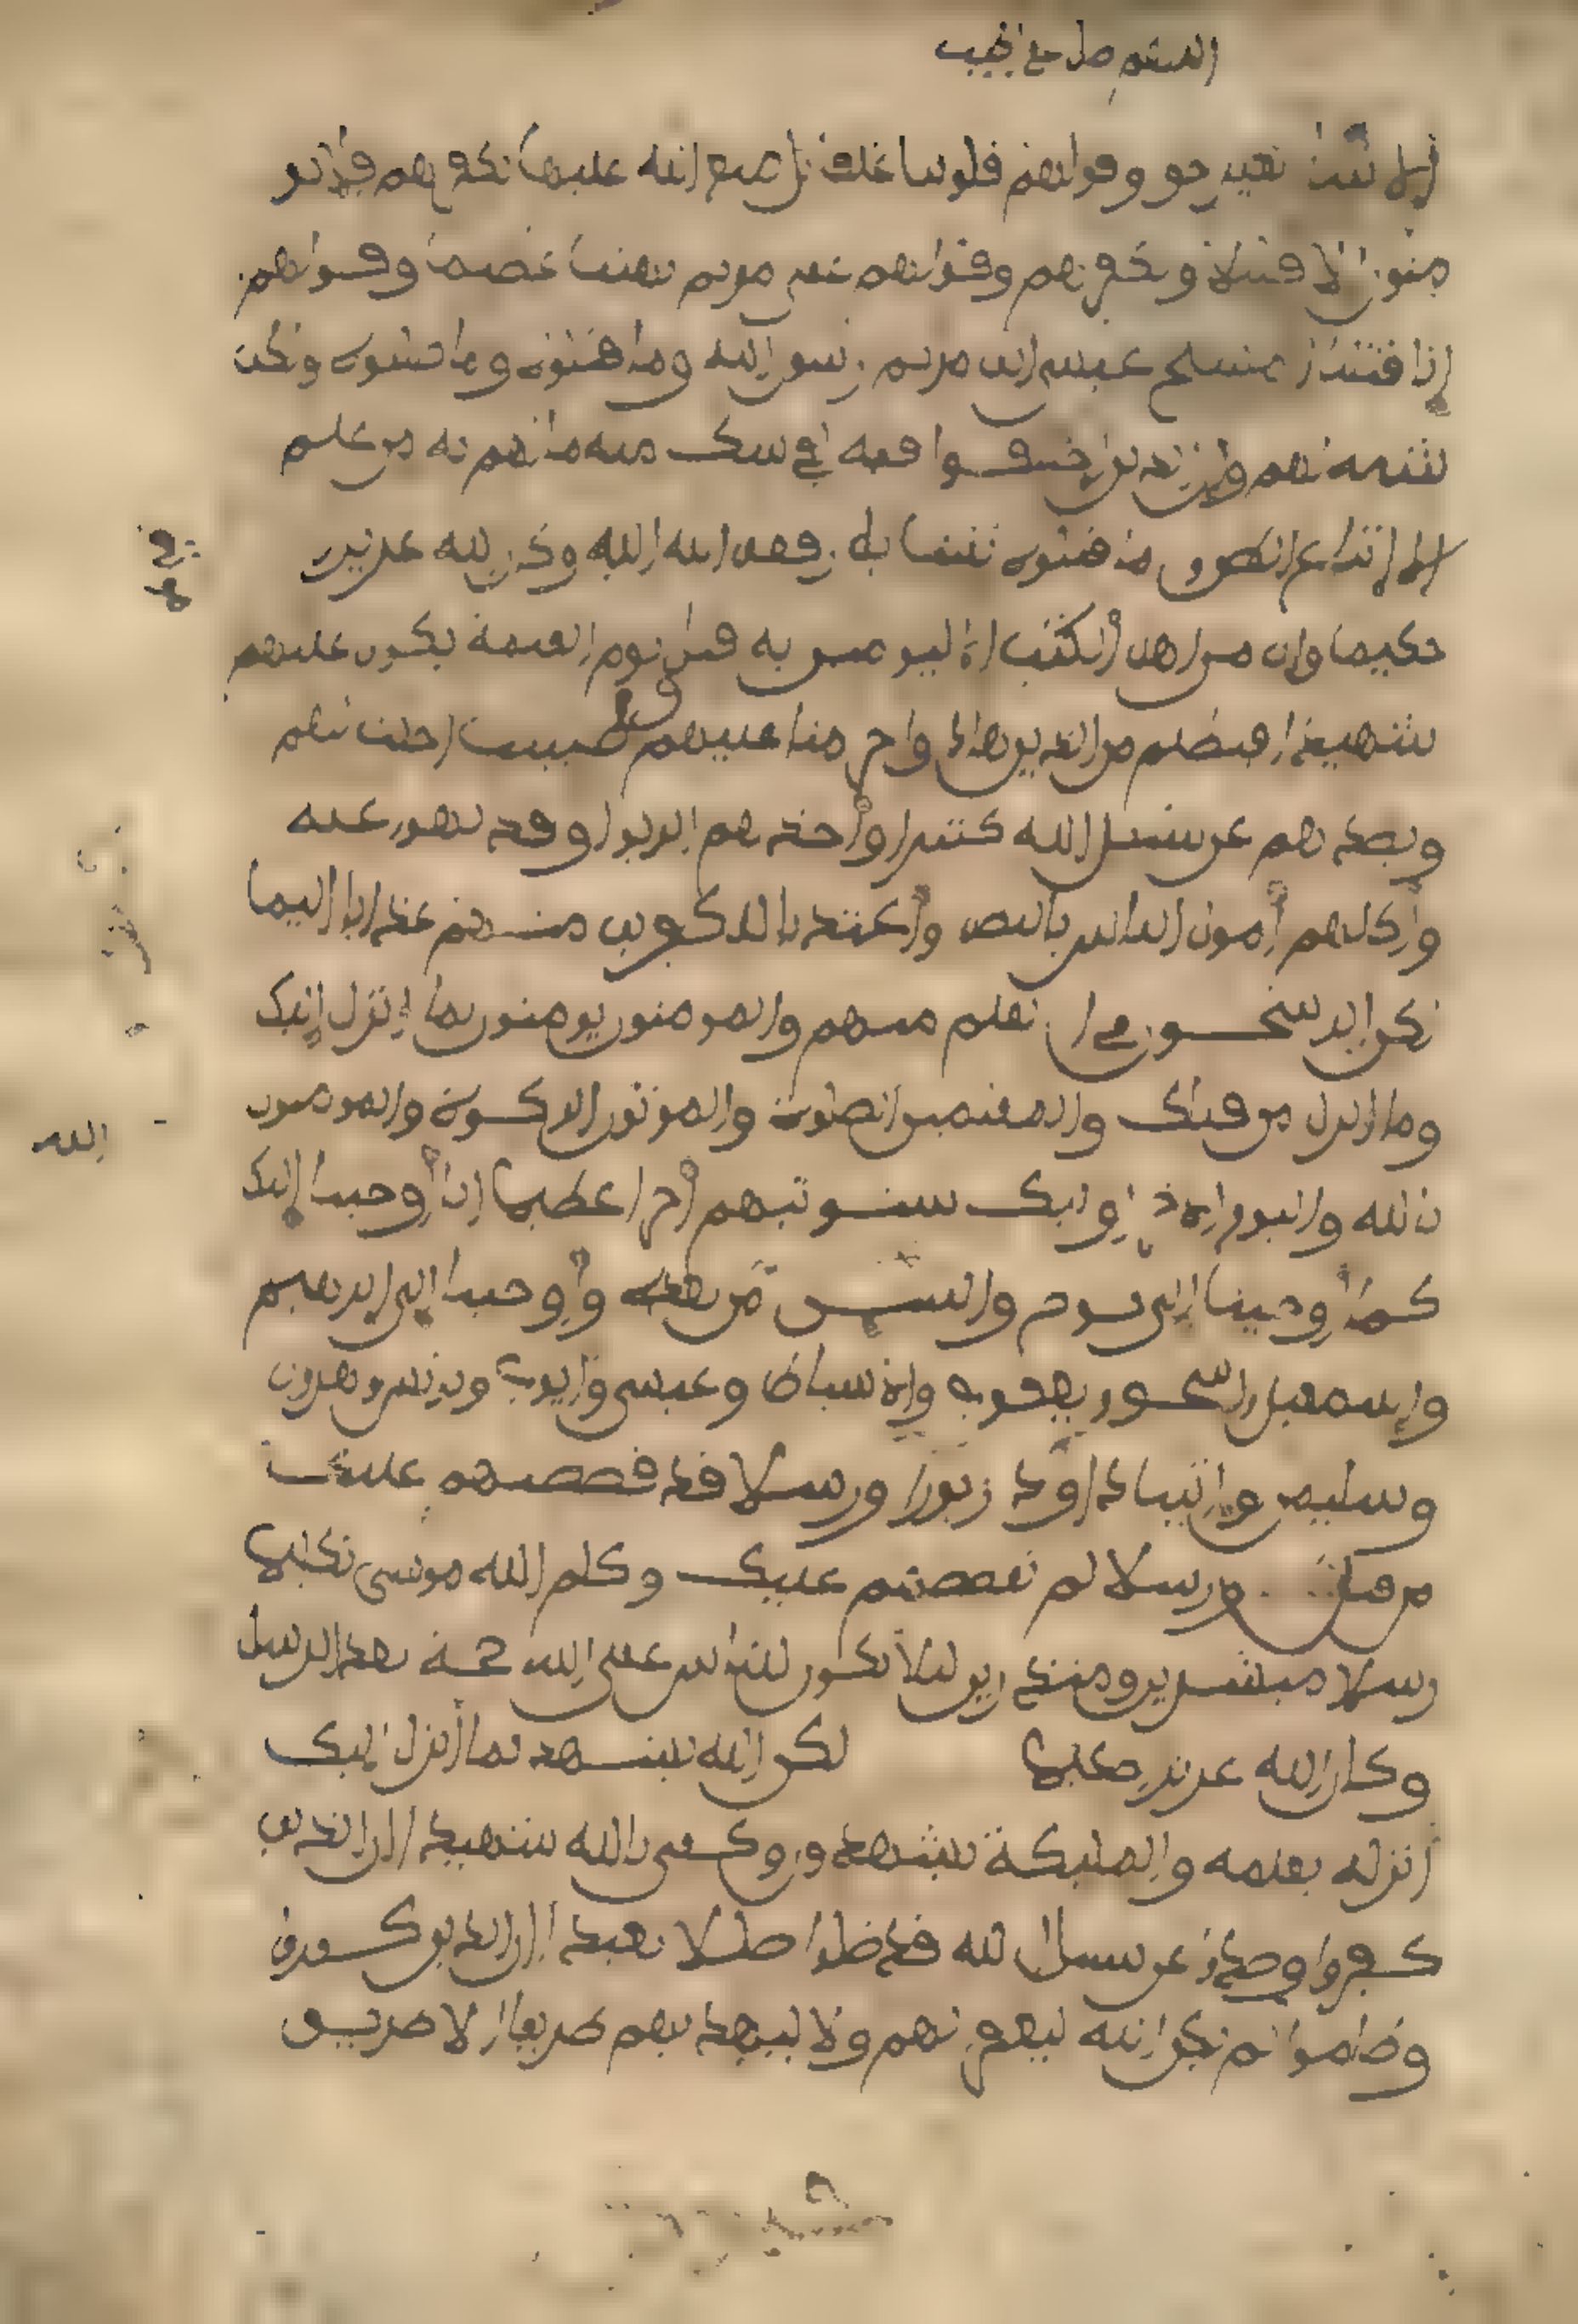 اللهم صل على الحبيب
بغير حق وقولهم قلوبنا غلف بل طبع الله عليها بكفرهم فلا يو
منون إلا قليلا وبكفرهم وقولهم على مريم بهتنا عظيما وقولهم
إنا قتلنا المسيح عيسى ابن مريم رسول الله وما قتلوه وما صلبوه ولكن
شبه لهم وإن الذين اختلفوا فيه لفي شك منه ما لهم به من علم
إلا اتباع الظن وما قتلوه يقينا بل رفعه الله إليه وكان الله عزيزا
حكيما وإن من أهل الكتب إلا ليومنن به قبل يوم القيمة يكون عليهم
شهيدا فبظلم من الذين هادوا حرمنا عليهم طيبت أحلت لهم
وبصدهم عن سبيل الله كثيرا وأخذهم الربوا وقد نهوا عنه
وأكلهم أمول الناس بالبطل وأعتدنا للكفرين منهم عذابا أليما
لكن الرسخون في العلم منهم والمومنون يومنون بما أنزل إليك
وما أنزل من قبلك والمقيمين الصلوة والموتون الزكوة والمومنون
بالله واليوم الاخر أوليك سنوتيهم أجرا عظيما إنا أوحينا إليك
كما أوحينا إلى نوح والنبيين من بعده وأوحينا إلى إبرهيم
وإسمعيل وإسحق ويعقوب والاسباط وعيسى وأيوب ويونس وهرون
وسليمن واتينا داوود زبورا ورسلا قد قصصنهم عليك
من قبل ورسلا لم نقصصهم عليك وكلم الله موسى تكليما
رسلا مبشرين ومنذرين ليلا يكون للناس على الله حجة بعد الرسل
وكان الله عزيزا حكيما لكن الله يشهد بما أنزل إليك
أنزله بعلمه والمليكة يشهدون وكفى بالله شهيدا إن الذين
كفروا وصدوا عن سبيل الله قد ضلوا ضللا بعيدا إن الذين كفروا
وظلموا لم يكن الله ليغفر لهم ولا ليهديهم طريقا إلا طريق
الله